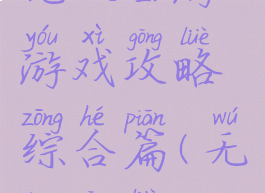 yóu xì gōng lüè
游戏攻略
zōng hé piān wú
综合篇(无